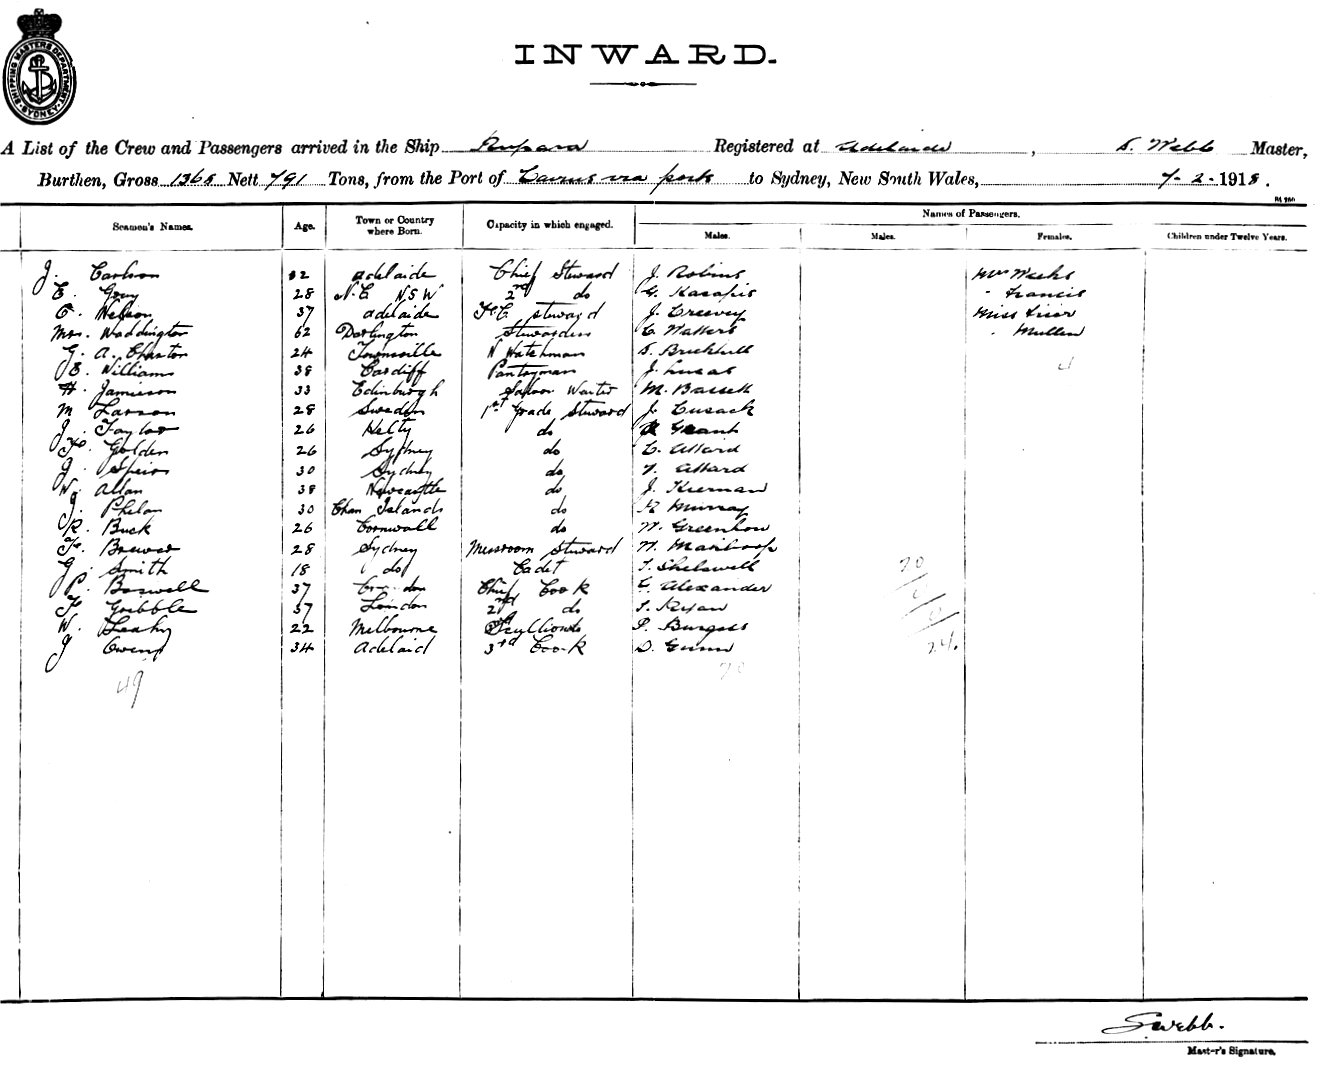 SHIPPING MASTERS DEPARTMENT SYDNEY
INWARD.
A List of the Crew and Passengers arrived in the Ship Rupara Registered at Adelaide, S. Webb Master,
Burthen, Gross 1365 Nett 791 Tons, from the Port of Cairns via ports to Sydney, New South Wales, 7-2-1918.
Names of Passengers.
Seamen's Names. Age. Town or Country where Born. Capacity in which engaged. Males. Males. Females. Children under Twelve Years.
J. Carlson 32 Adelaide Chief Steward J. Robins Mrs Weeks
E. Gray 28 N.E NSW 2nd do G. Kasapis " Francis
O. Nelson 37 Adelaide F.C. Steward J. Creevey Miss
Mrs. Waddington 62 Darlington Stewardess C. Watters " Mullen
G. A. Charton 24 Townsville N Watchman S. Brickhill
E. Williams 38 Cardiff Pantryman J. Lucas 4
H. Jamieson 33 Edinburgh Saloon Waiter M. Bassett
M Larson 28 Sweden 1st Grade Steward J. Cusack
J. Taylor 26 Kelty do Grant
F. Golden 26 Sydney do C. Allard
J. Speirs 30 Sydney do V. Allard
W. Allan 38 Newcastle do J. Kiernan
J. Phelan 30 Chan Islands do K Murray
R. Buck 26 Cornwall do W. Greenhow
F. Brewer 28 Sydney Messroom Steward W.
G. Smith 18 do Cadet T. Shelswell 20
P. Boswell 37 Chief Cook G. Alexander
F. Gribble 37 London 2nd do T. Ryan
W. Leahy 22 Melbourne Scullion P. Burgess
J Owens 34 Adelaid 3rd Cook D. Gunn 24
49 20
S Webb.
Master's Signature.